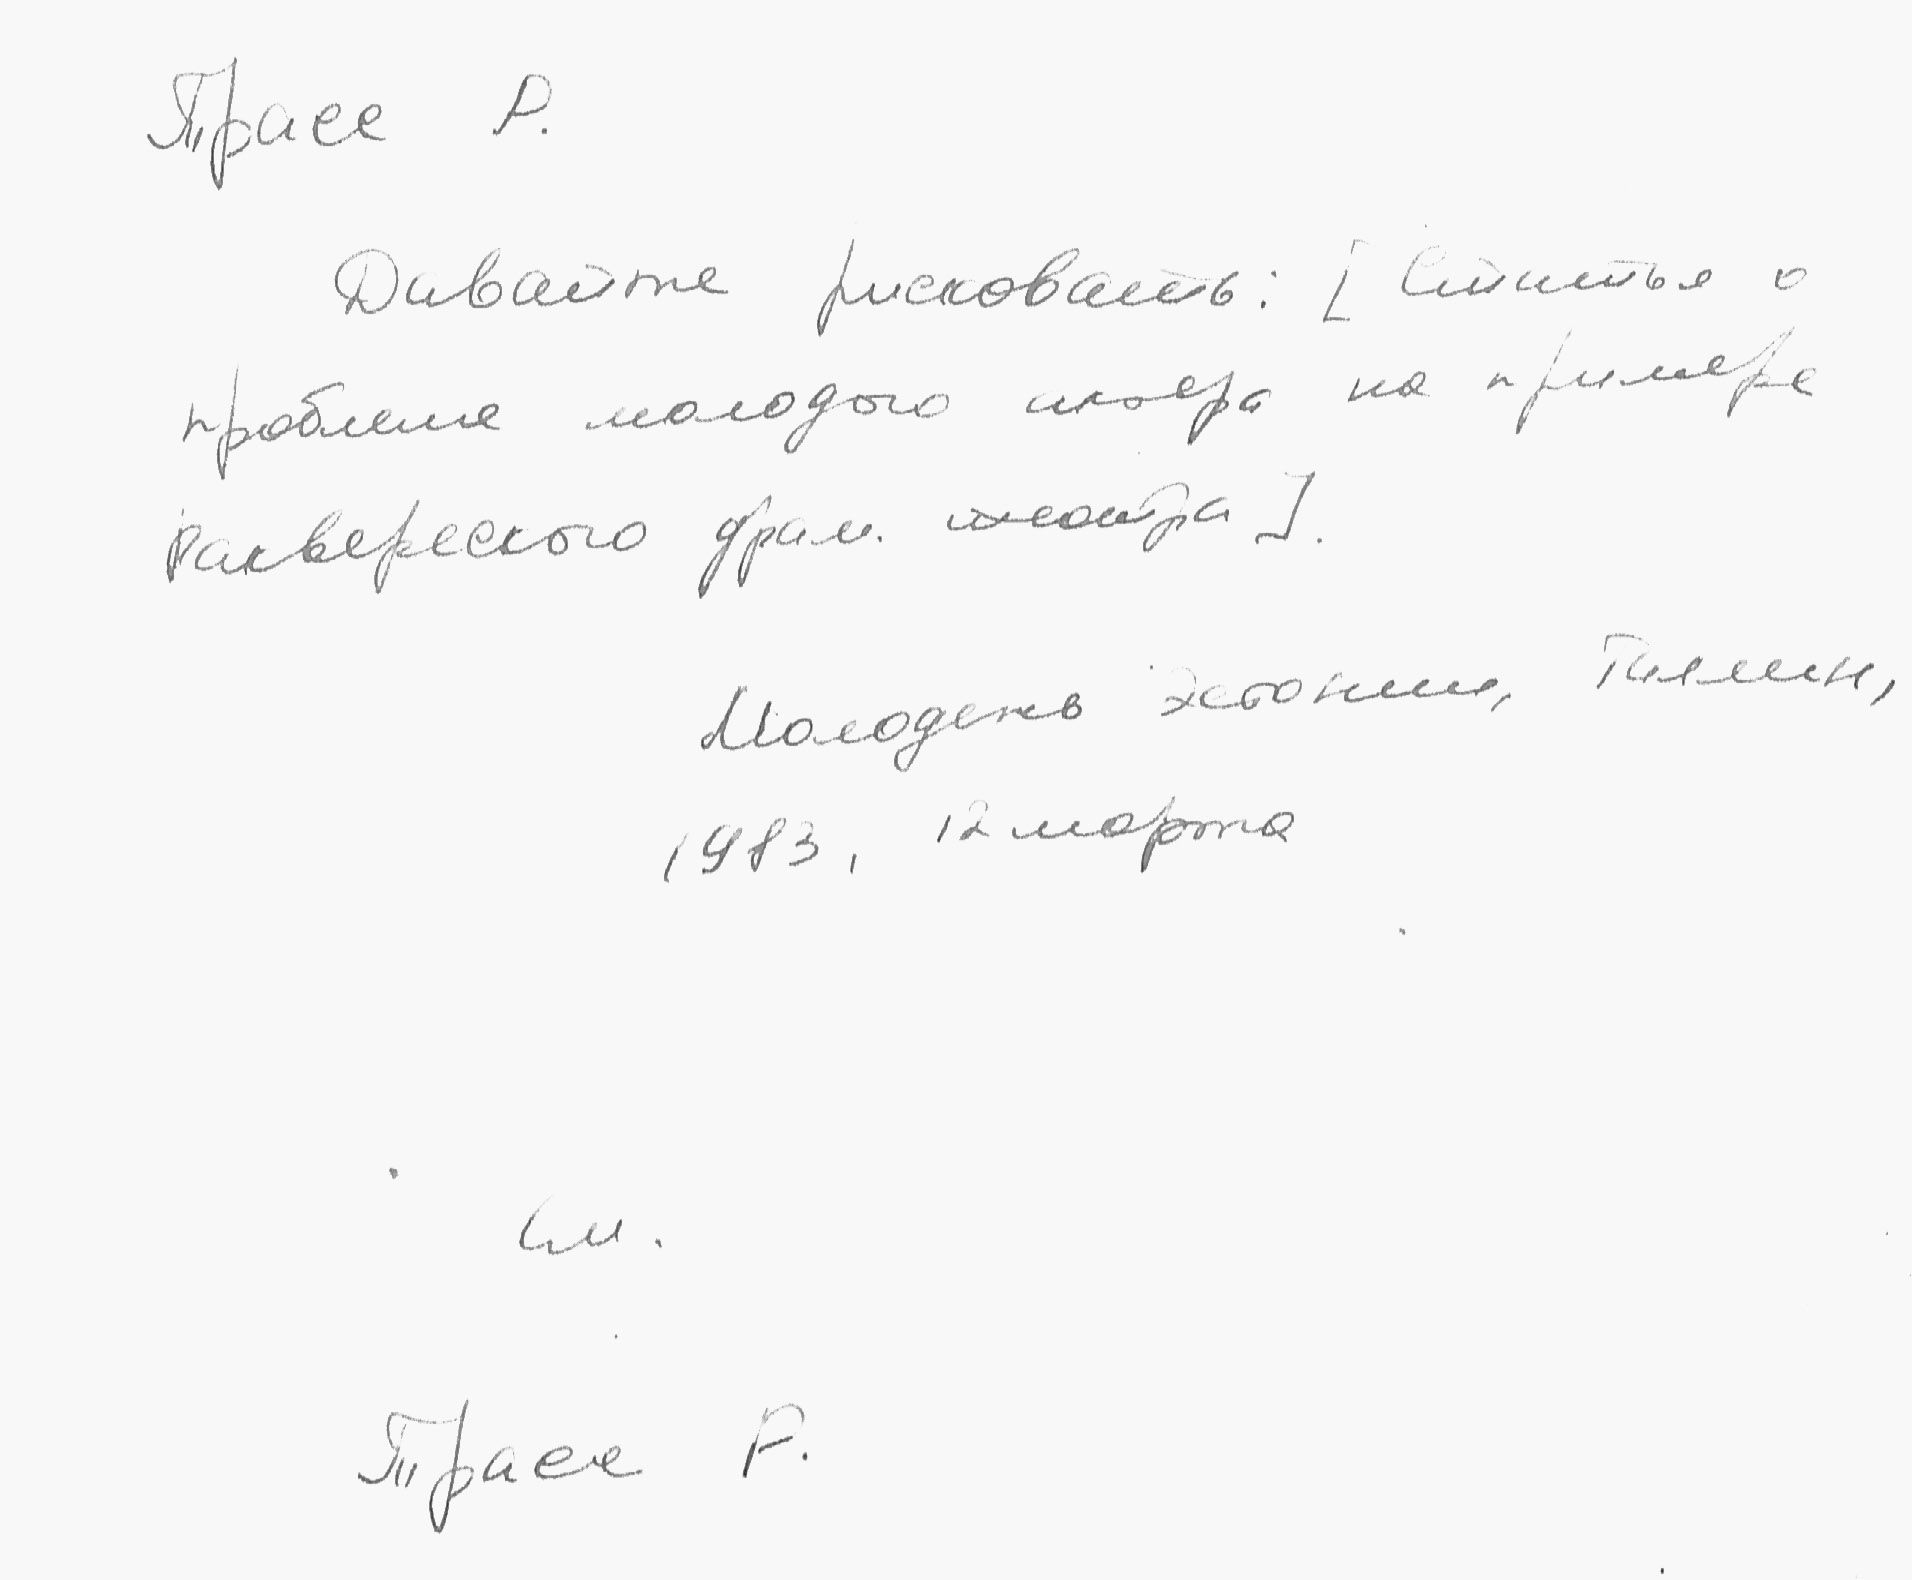 Трасс Р.
Давайте рисковать: [Статья о
проблеме молодого актера на примере
Раквереского драм. театра].
Молодежь Эстонии, Таллин,
1983, 12 марта
См.
Трасс Р.